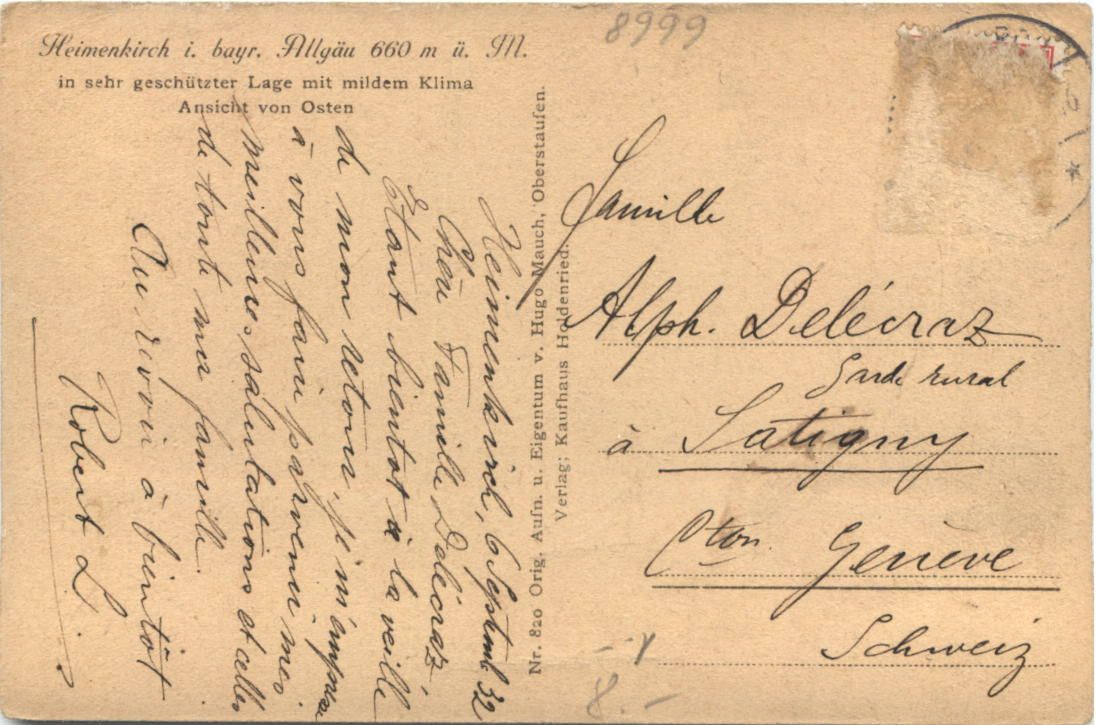 8999
Heimenkirch i. bayr. Allgäu 660 m ü. M.
in sehr geschützter Lage mit mildem Klima
Ansicht von Osten
Heimenkirch, 6 Septemb. 32
Chère Famille Delécraz
Etant bientot à la veille
de mon retour, je m'empresse
à vous faire parvenir mes
meilleures salutations et celles
de toute ma famille.
Au revoir à bientôt
Robert L.
Nr. 820 Orig. Aufn. u. Eigentum v. Hugo Mauch, Oberstaufen.
Verlag: Kaufhaus Holdenried.
Famille
Alph. Delécraz
Garde rural
à Satigny
Cton. Genève
Schweiz
8.-